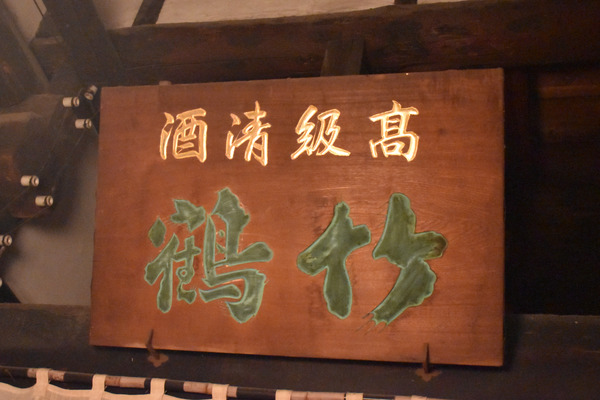 高級清酒
竹鶴